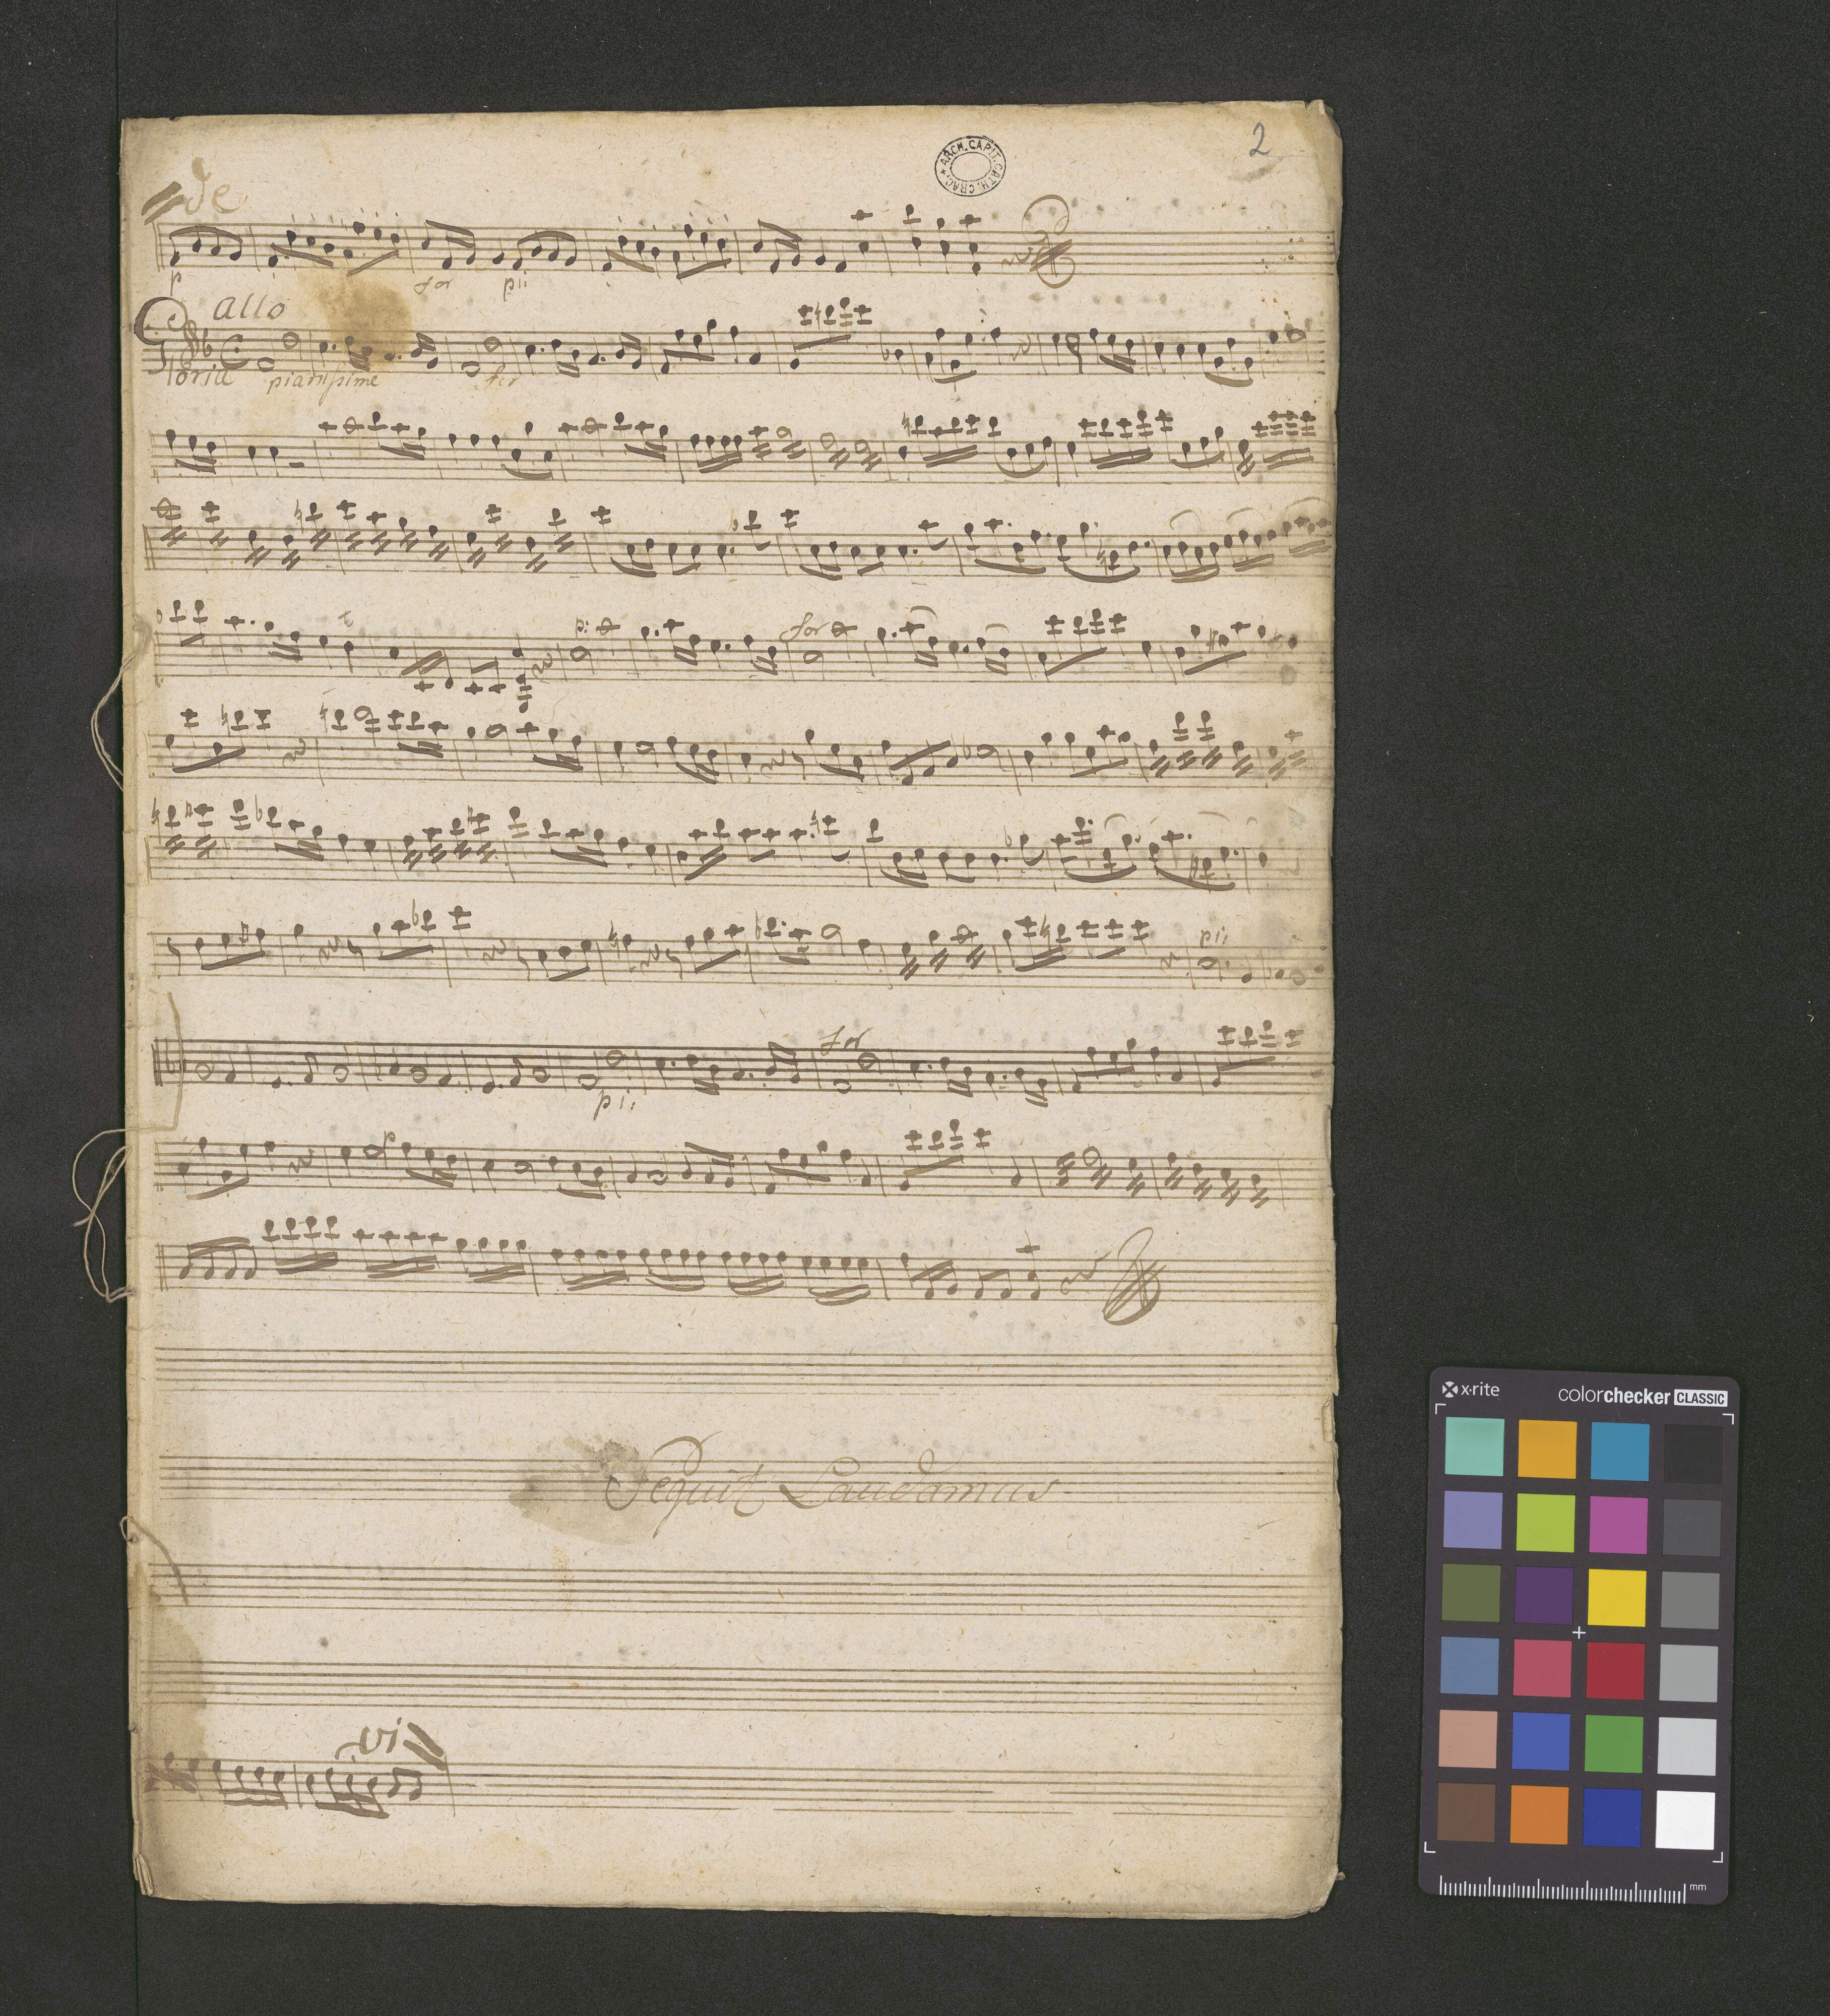 2
ARCH. CAPIT. CATH. CRAC.
de
p for pii
Allo
Gloria pianissime for
p: for
pii
for
pii
p
Sequit Laudamus
vi
x·rite colorchecker CLASSIC
mm